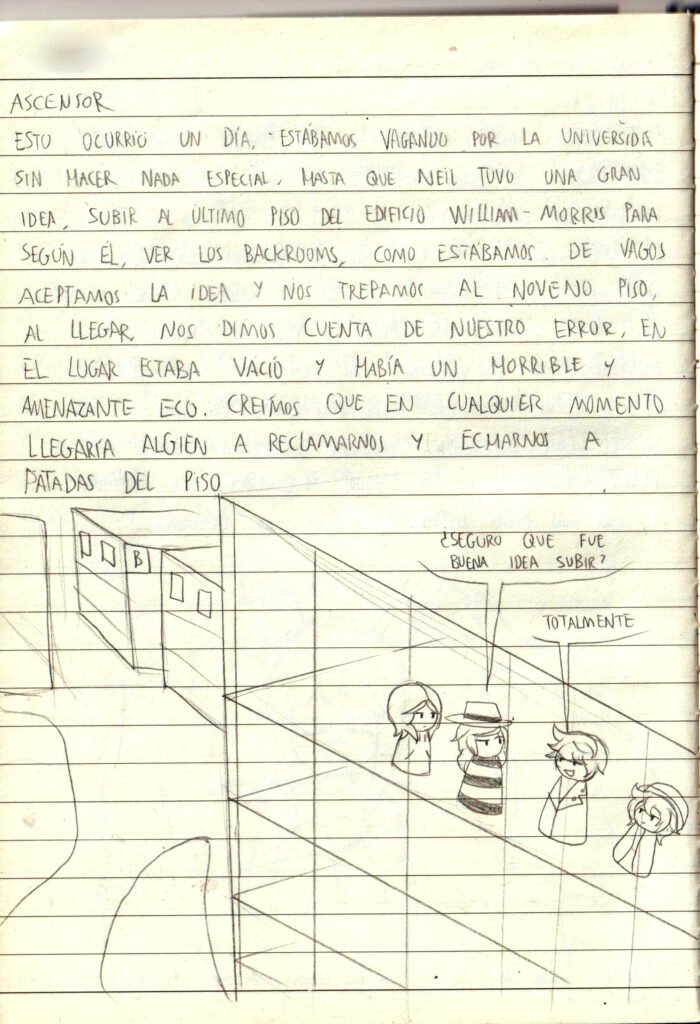 ASCENSOR
ESTO OCURRIÓ UN DÍA, ESTÁBAMOS VAGANDO POR LA UNIVERSIDA
SIN HACER NADA ESPECIAL, HASTA QUE NEIL TUVO UNA GRAN
IDEA, SUBIR AL ÚLTIMO PISO DEL EDIFICIO WILLIAM-MORRIS PARA
SEGÚN ÉL, VER LOS BACKROOMS, COMO ESTÁBAMOS DE VAGOS
ACEPTAMOS LA IDEA Y NOS TREPAMOS AL NOVENO PISO,
AL LLEGAR, NOS DIMOS CUENTA DE NUESTRO ERROR, EN
EL LUGAR ESTABA VACIÓ Y HABÍA UN HORRIBLE Y
AMENAZANTE ECO. CREÍMOS QUE EN CUALQUIER MOMENTO
LLEGARÍA ALGIEN A RECLAMARNOS Y ECHARNOS A
PATADAS DEL PISO
¿SEGURO QUE FUE
BUENA IDEA SUBIR?
B
TOTALMENTE